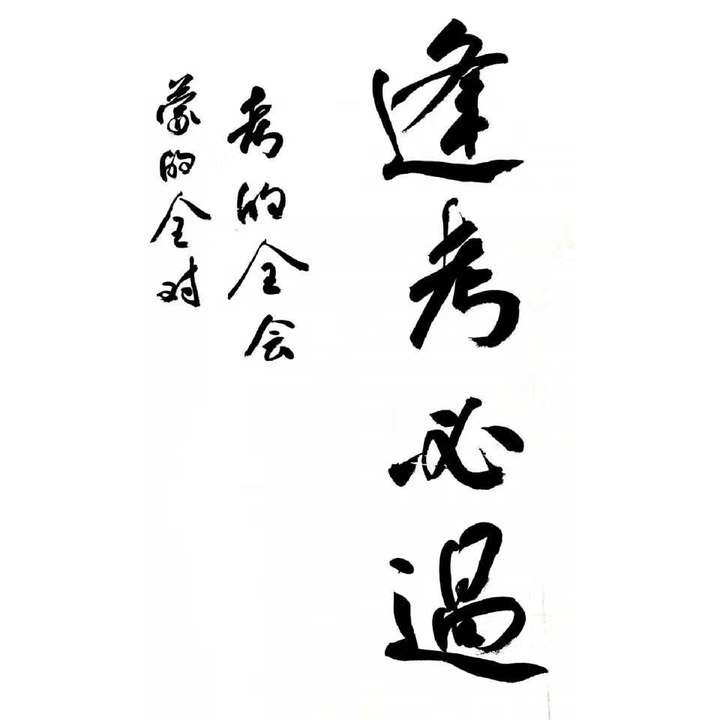 逢考必過
考的全会
蒙的全对